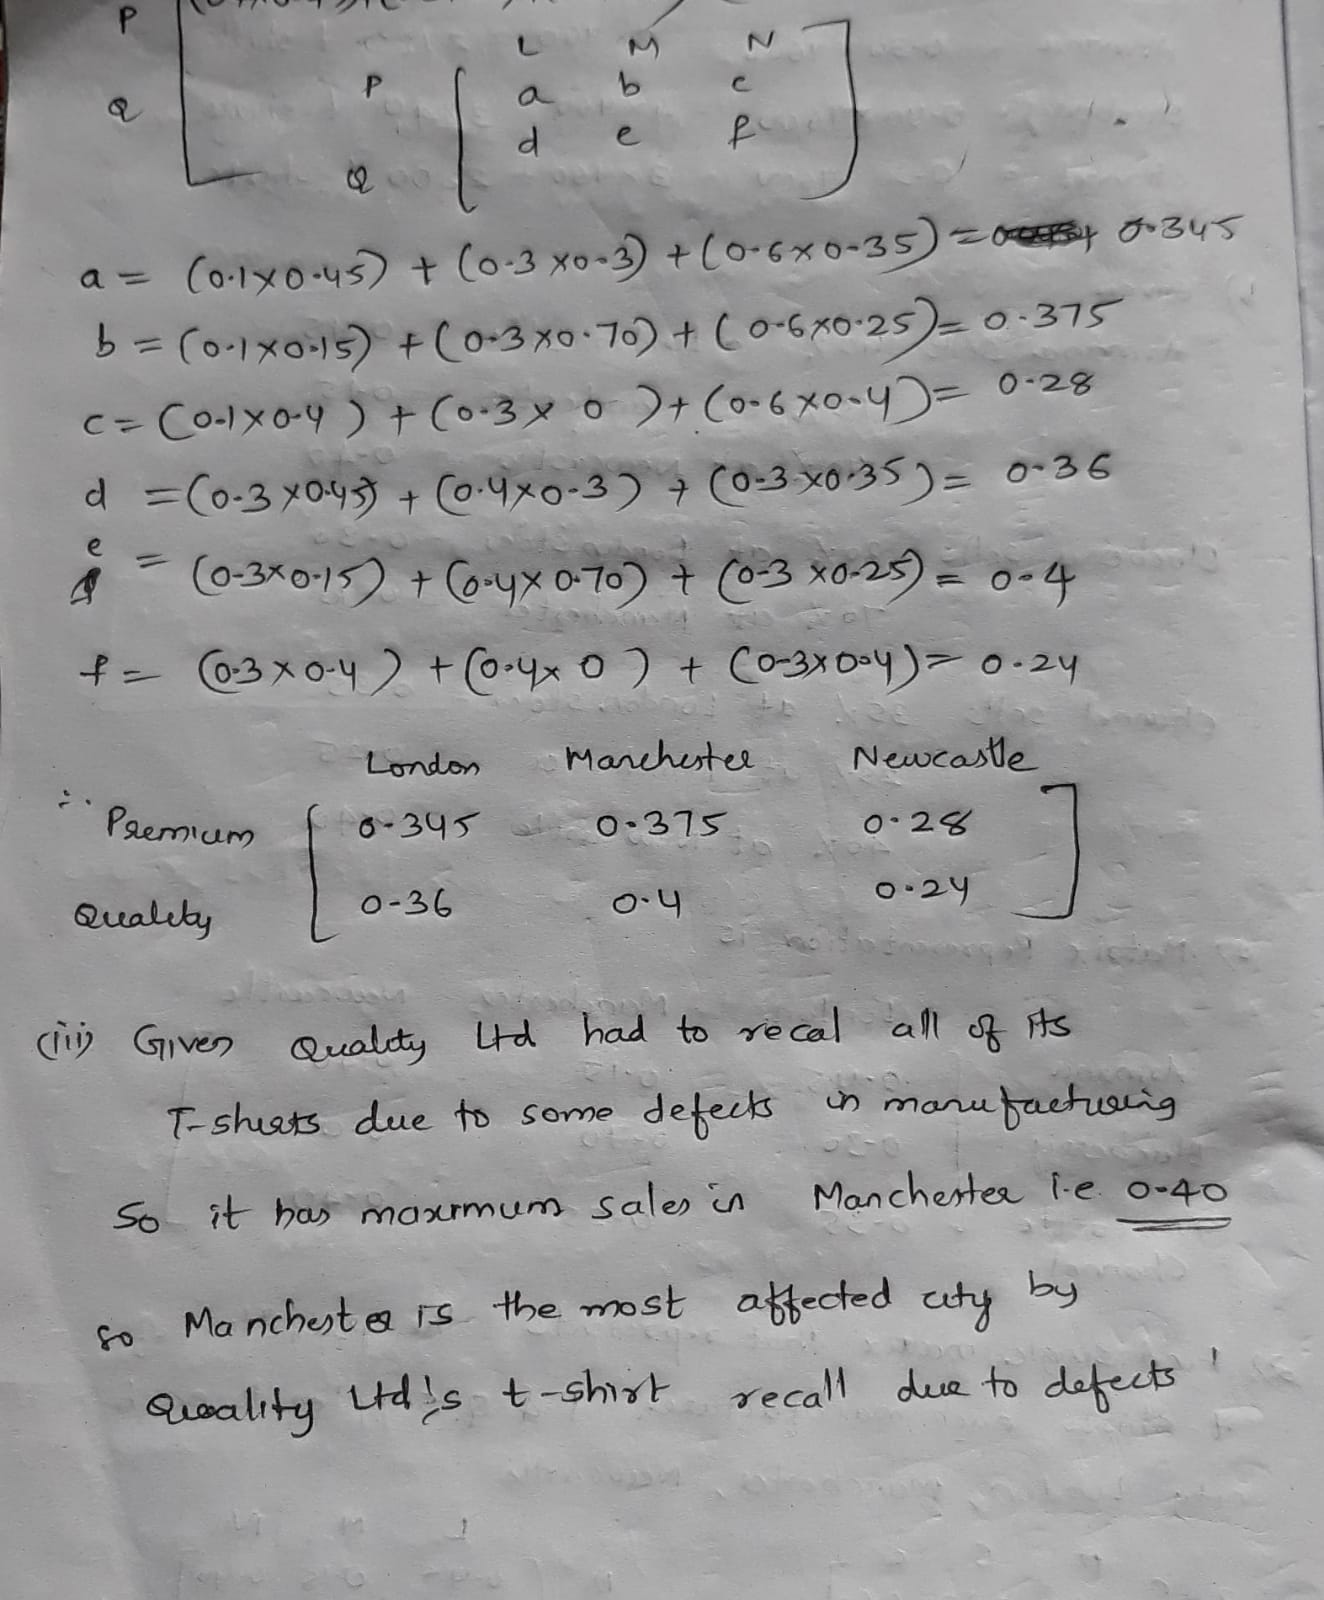 P
L M N
P a b c
Q
d e f
Q
a = (0.1×0.45) + (0.3×0.3) + (0.6×0.35) = 0.345
b = (0.1×0.15) + (0.3×0.70) + (0.6×0.25) = 0.375
c = (0.1×0.4) + (0.3×0) + (0.6×0.4) = 0.28
d = (0.3×0.45) + (0.4×0.3) + (0.3×0.35) = 0.36
e = (0.3×0.15) + (0.4×0.70) + (0.3×0.25) = 0.4
f = (0.3×0.4) + (0.4×0) + (0.3×0.4) = 0.24
London Manchester Newcastle
∴ Premium 0.345 0.375 0.28
Quality 0.36 0.4 0.24
(iii) Given Quality Ltd had to recal all of its
T-shirts due to some defects in manufacturing
So it has maximum sales in Manchester i.e. 0.40
so Manchester is the most affected city by
Quality Ltd's t-shirt recall due to defects